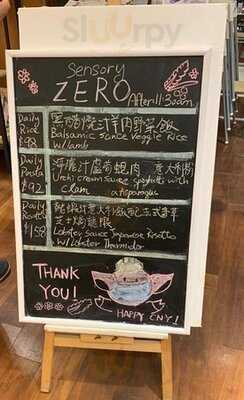 Slurrpy
Sensory
ZERO
After 11:30am
Daily Rice $98
黑醋燒汁羊肉野菜飯
Balsamic Sauce Veggie Rice
w/Lamb
Daily Pasta $92
海膽汁蘆荀蜆肉 意大利粉
Urchi cream Sauce spaghetti with
clam asparagus
Daily Risotto $158
Lobster Sauce Japanese Risotto
w/ Lobster Thermidor
THANK
YOU!
HAPPY CNY!